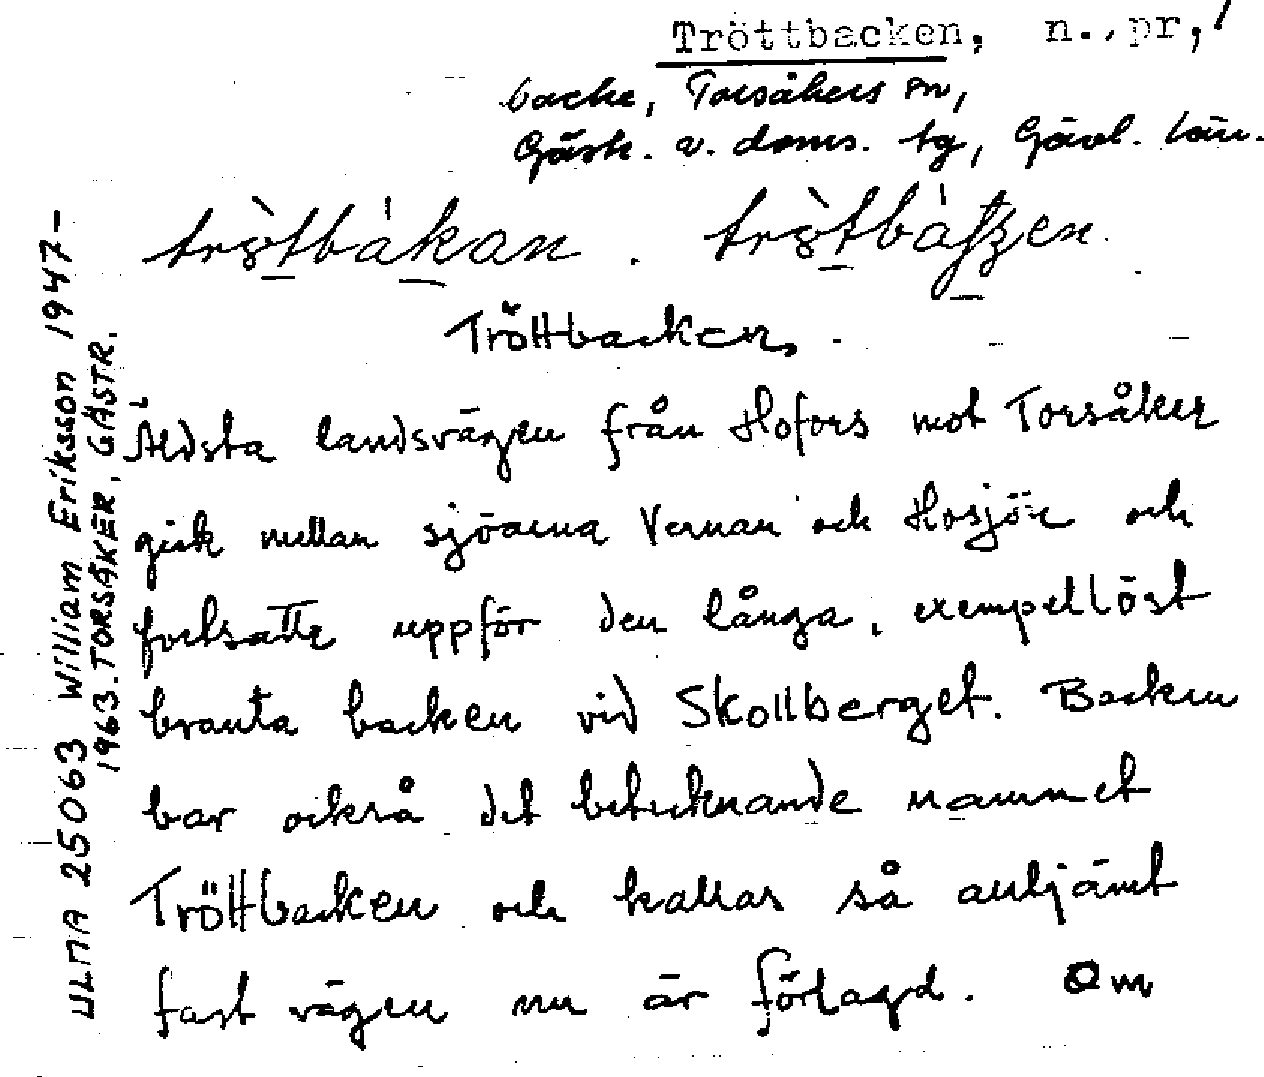 Tröttbacken, n., pr,
backe, Torsåkers sn,
Gästr. v. doms. tg, Gävl. län.
Tröttbacken.
Äldsta landsvägen från Hofors mot Torsåker
gick mellan sjöarna Vernan och Hosjön och
fortsatte uppför den långa, exempellöst
branta backen vid Skollberget. Backen
bar också det betecknande namnet
Tröttbacken och kallas så alltjämt
fast vägen nu är förlagd. Om
ULMA 25063 William Eriksson 1947-
1963. TORSÅKER, GÄSTR.